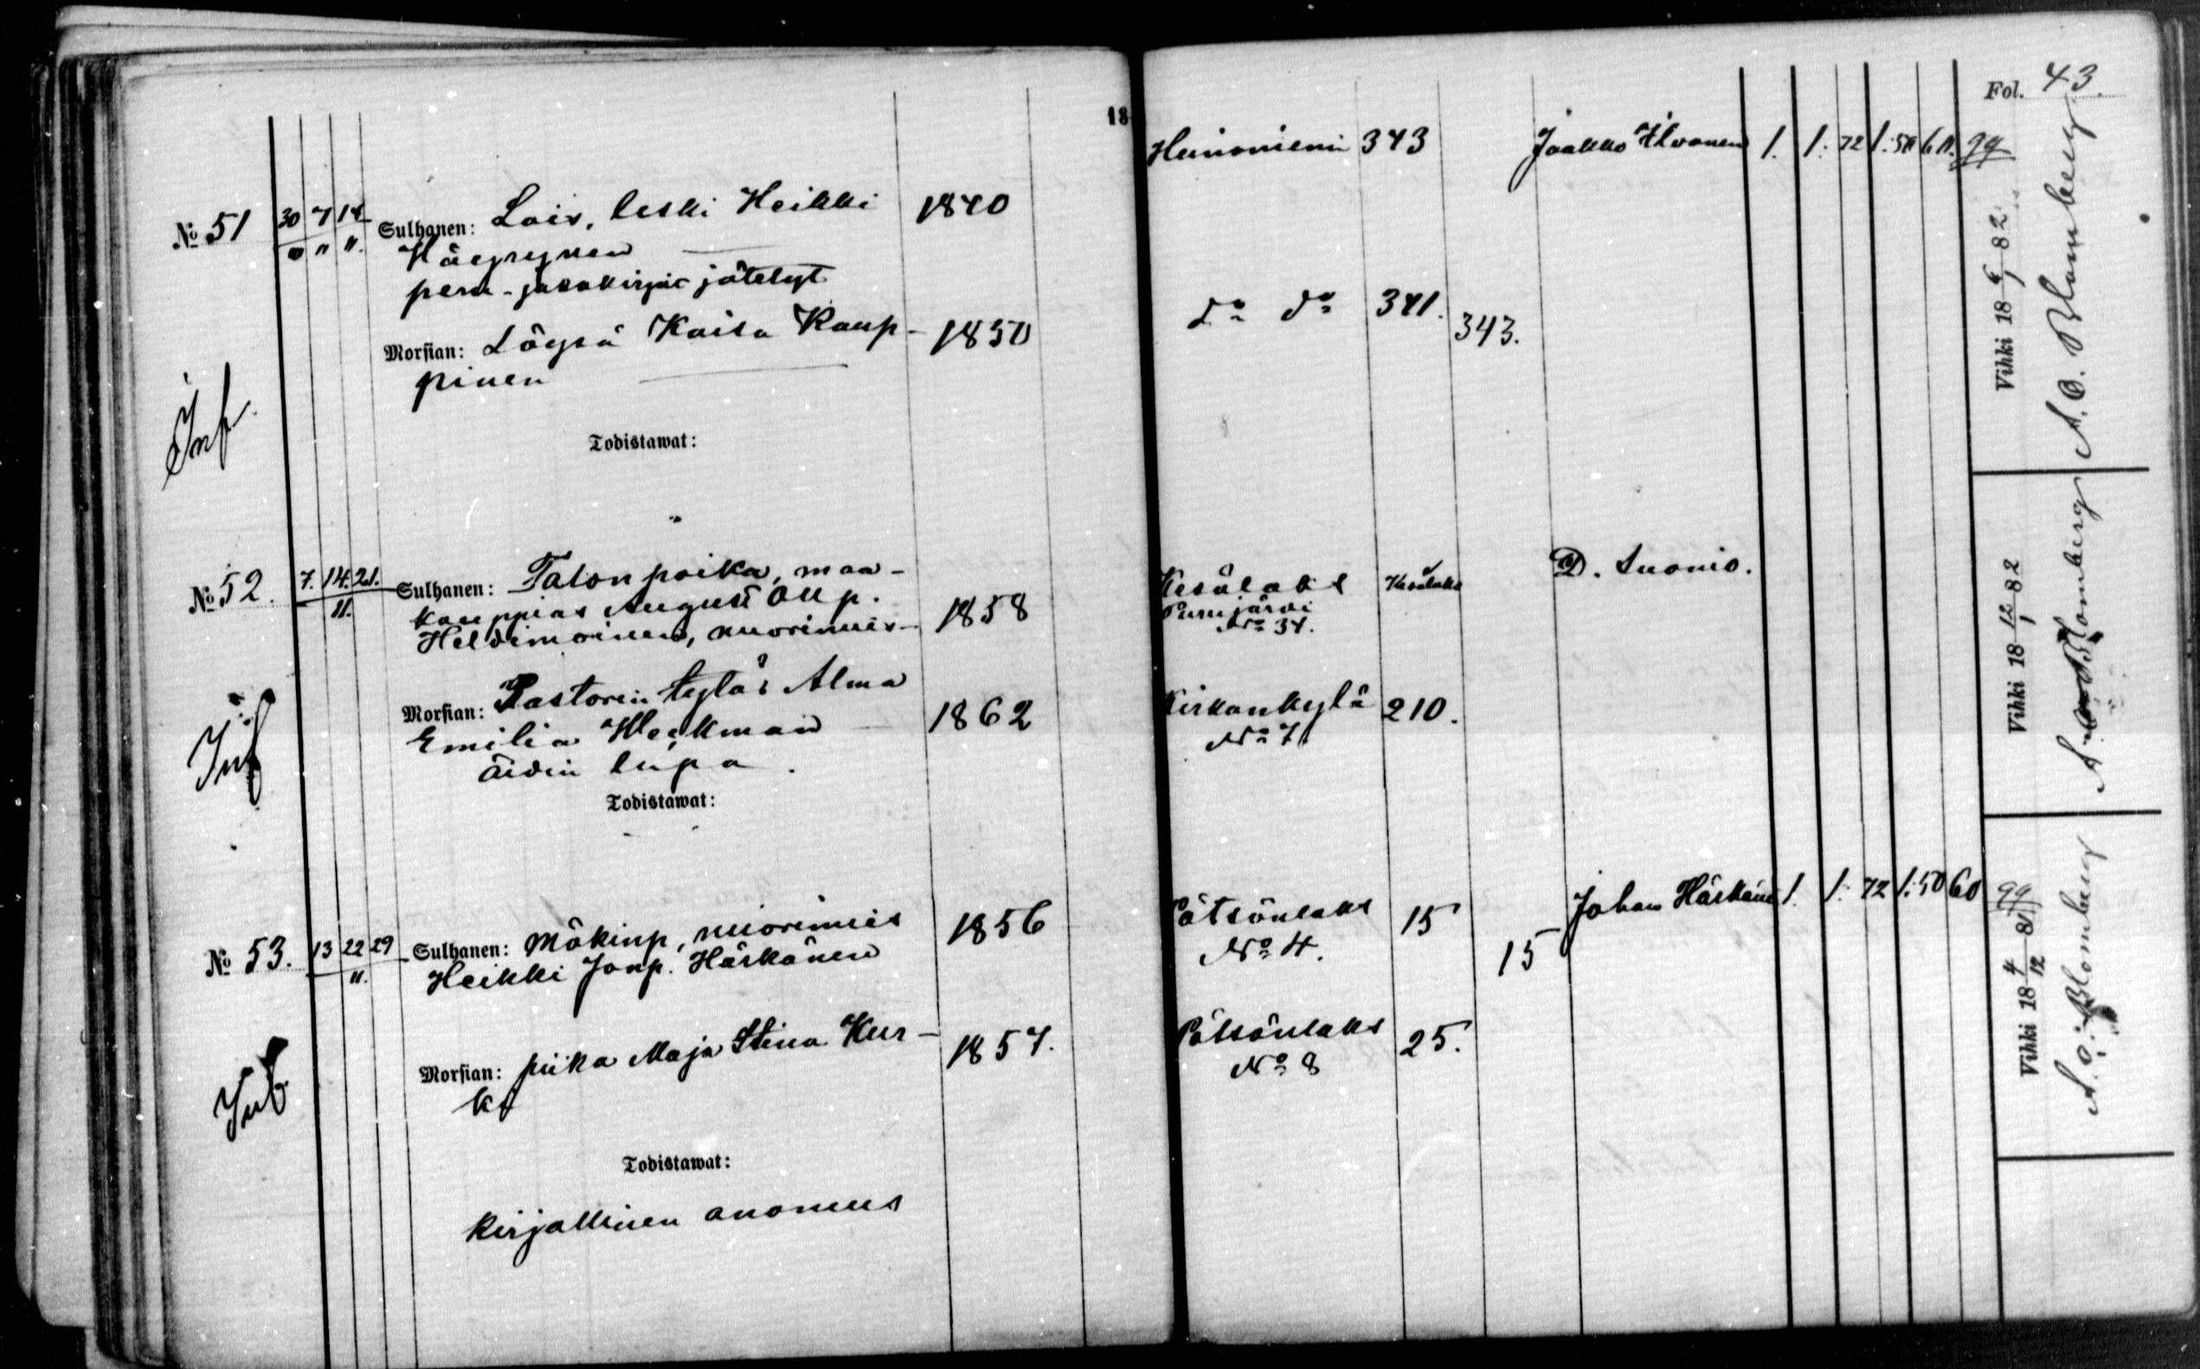 18
Fol. 43.
№ 51 30 7 14
Sulhanen: Lois, leski Heikki 1840
Häyrynen
peru-jakokirja jätetyt
Morsian: Löysä Kaisa Kaup- 1850
pinen
Inf.
Todistawat:
Heinoniemi 343 Jaakko Ilvonen 1. 1. 72 1. 50 60.
Do do 341.
343.
Vihki 18 6/1 82
A. O. Blomberg
№ 52. 7. 14. 21.
11.
Sulhanen: Talonpoika, maa-
kauppias August Ollp.
Heldimoinen, nuorimies 1858
Morsian: Pastorin tytär Alma
Emilia Heckman 1862
äidin lupa.
Inf
Todistawat:
Kesälaks Kesälaks D. Suonio.
Purujärvi
No 34.
Kirkonkylä 210.
No 7.
Vihki 18 12/1 82
A. O. Blomberg
№ 53. 13 22 29
11.
Sulhanen: Mökinp, nuorimies 1856
Heikki Joup. Härkönen
Morsian: piika Maja Stina Kur- 1857.
ki
Inf
Todistawat:
kirjallinen anomus
Pötsönlaks 15 Johan Härkönen 1. 1. 72 1. 50 60
No 4.
15
Pötsönlaks 25.
No 8
Vihki 18 4/12 81
A. O. Blomberg